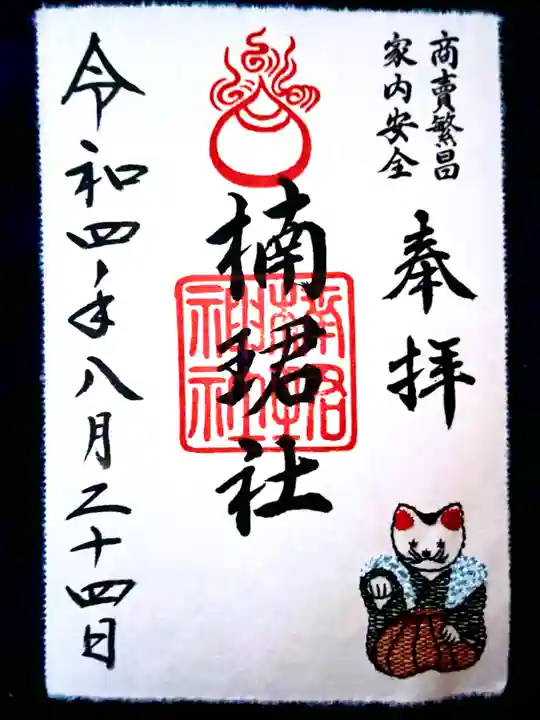 商賣繁昌
家内安全
奉拝
楠珺社
楠珺神社
令和四年八月二十四日